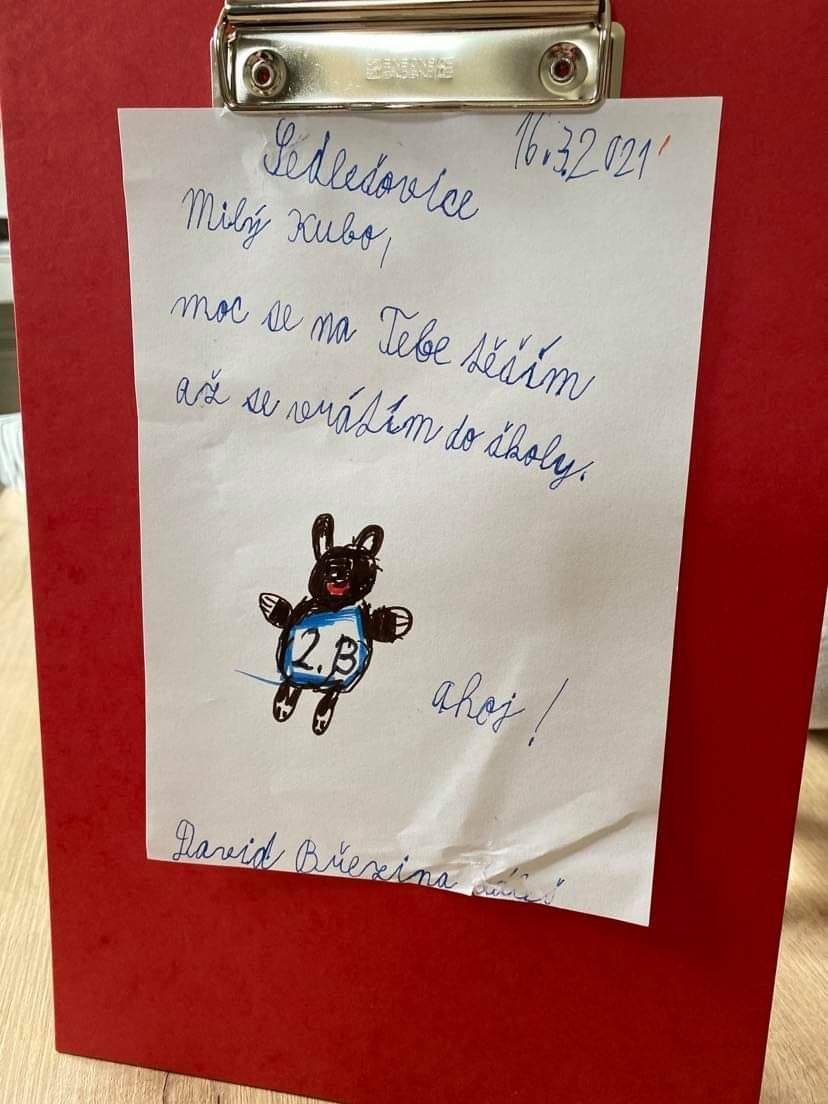 Sedlešovice
16.3.2021
Milý Kubo,
moc se na Tebe těším
až se vrátím do školy.
2.B
ahoj!
David Březina